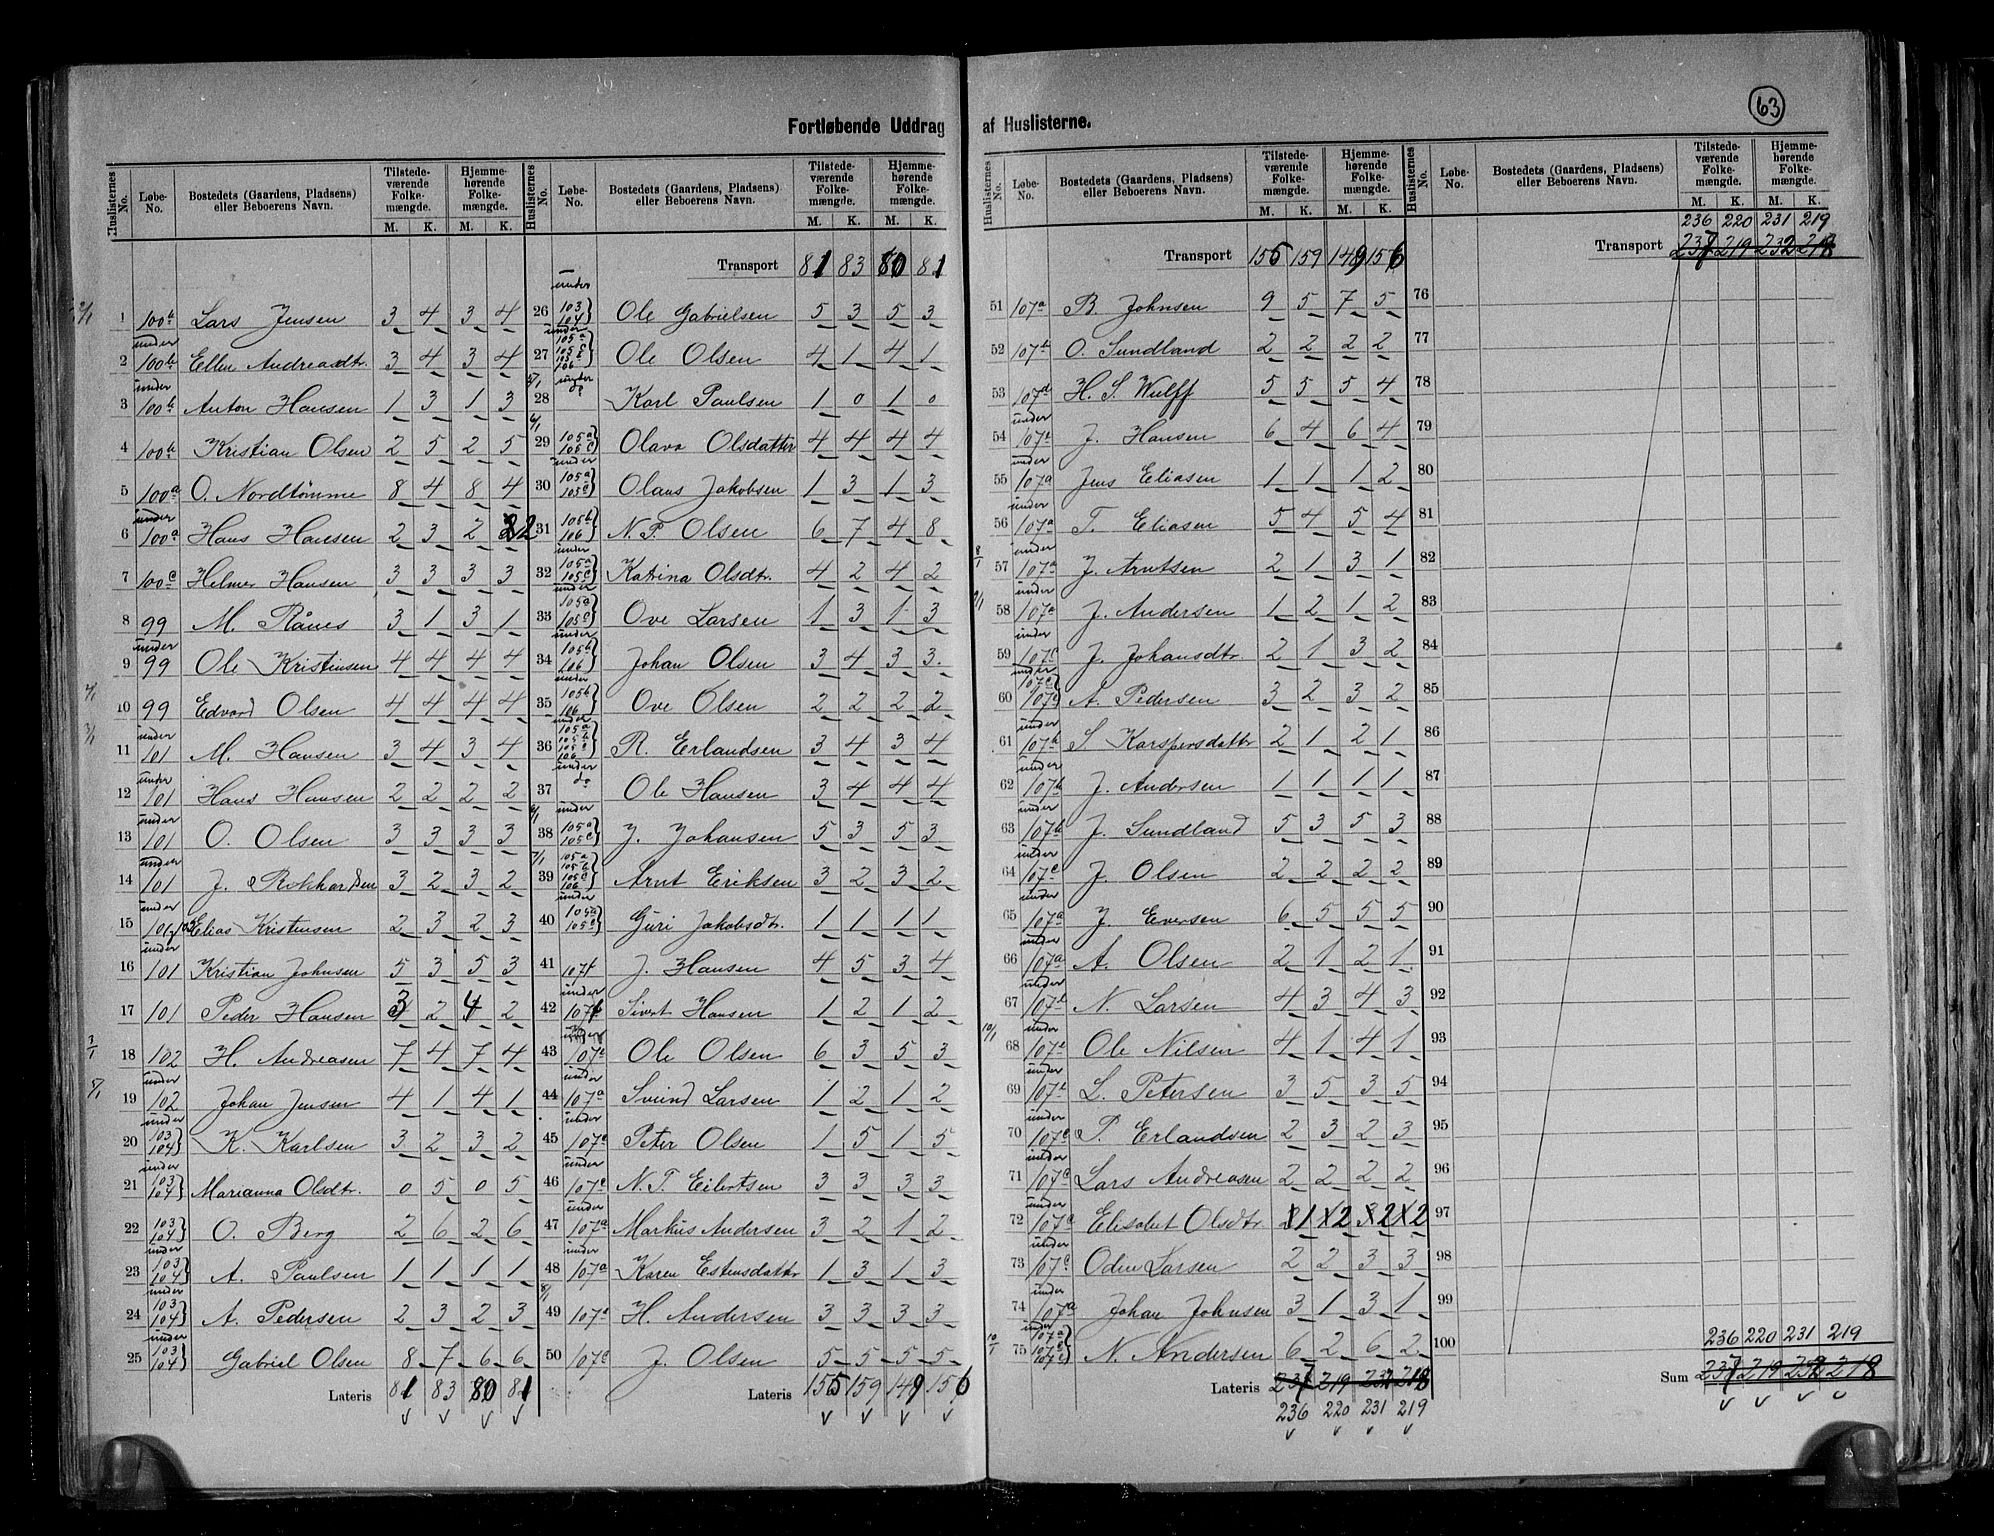 63
Fortløbende Uddrag af Huslisterne.
Huslisternes No. Løbe-No. Bostedets (Gaardens, Pladsens) eller Beboerens Navn. Tilstedeværende Folkemængde. M. K. Hjemmehørende Folkemængde. M. K.
1 100b Lars Jensen 3 4 3 4
2 under 100b Ellen Andreasdtr. 3 4 3 4
3 under 100b Anton Hansen 1 3 1 3
4 100b Kristian Olsen 2 5 2 5
5 100a O. Nordtømme 8 4 8 4
6 under 100a Hans Hansen 2 3 2 2
7 100c Helmer Hansen 3 3 3 3
8 99 M. Rånes 3 1 3 1
9 under 99 Ole Kristensen 4 4 4 4
10 99 Edvard Olsen 4 4 4 4
11 under 101 M. Hansen 3 4 3 4
12 under 101 Hans Hansen 2 2 2 2
13 under 101 O. Olsen 3 3 3 3
14 under 101 J. 3 2 3 2
15 under Elias Kristensen 2 3 2 3
16 under 101 Kristian Johnsen 5 3 5 3
17 101 Peder Hansen 3 2 4 2
18 102 H. Andreasen 7 4 7 4
19 under 102 Johan Jensen 4 1 4 1
20 under 103 104 K. Karlsen 3 2 3 2
21 under 103 104 Marianna Olsdtr. 0 5 0 5
22 103 104 O. Berg 2 6 2 6
23 under 103 104 A. Paulsen 1 1 1 1
24 103 104 A. Pedersen 2 3 2 3
25 under 103 104 Gabriel Olsen 8 7 6 6
Lateris 81 83 80 81
Huslisternes No. Løbe-No. Bostedets (Gaardens, Pladsens) eller Beboerens Navn. Tilstedeværende Folkemængde. M. K. Hjemmehørende Folkemængde. M. K.
Transport 81 83 80 81
26 under 103 104 Ole Gabrielsen 5 3 5 3
27 under Ole Olsen 4 1 4 1
28 under do Karl Paulsen 1 0 1 0
29 105a 105c Olava Olsdatter 4 4 4 4
30 under 105a 105c Olaus Jakobsen 1 3 1 3
31 105b 106 N. P. Olsen 6 7 4 8
32 under 105a 105c Katrina Olsdtr. 4 2 4 2
33 under 105a 105c Ove Larsen 1 3 1 3
34 under 105b 106 Johan Olsen 3 4 3 3
35 under 105b 106 Ove Olsen 2 2 2 2
36 under 105a 105b 105c 106 R. Erlandsen 3 4 3 4
37 under do Ole Hansen 3 4 4 4
38 under 105a 105c J. Johansen 5 3 5 3
39 105a 105b 105c 106 Arnt Eriksen 3 2 3 2
40 under 105a 105c Guri Jakobsdtr. 1 1 1 1
41 J. Hansen 4 5 3 4
42 under Sivert Hansen 1 2 1 2
43 under Ole Olsen 6 3 5 3
44 under 107a Svend Larsen 1 2 1 2
45 under 107c Peter Olsen 1 5 1 5
46 under 107c N. T. Eilertsen 3 3 3 3
47 under 107a Markus Andersen 3 2 1 2
48 under 107a Karen Estensdattr 1 3 1 3
49 107a H. Andersen 3 3 3 3
50 107c J. Olsen 5 5 5 5
Lateris 155 159 149 156
Huslisternes No. Løbe-No. Bostedets (Gaardens, Pladsens) eller Beboerens Navn. Tilstedeværende Folkemængde. M. K. Hjemmehørende Folkemængde. M. K.
Transport 155 159 149 156
51 107a B. Johnsen 9 5 7 5
52 107b O. Sundland 2 2 2 2
53 107d H. S. Wulff 5 5 5 4
54 under J. Hansen 6 4 6 4
55 under 107a Jens Eliasen 1 1 1 2
56 107a T. Eliasen 5 4 5 4
57 under 107a J. Arntsen 2 1 3 1
58 107a J. Andersen 1 2 1 2
59 under 107c J. Johansdtr 2 1 3 2
60 under A. Pedersen 3 2 3 2
61 under 107b S Karspersdattr 2 1 2 1
62 under 107b J. Andersen 1 1 1 1
63 under 107b J. Sundland 5 3 5 3
64 under 107c J. Olsen 2 2 2 2
65 under 107a J. Eversen 6 5 5 5
66 under 107a A. Olsen 2 1 2 1
67 under N. Larsen 4 3 4 3
68 under Ole Nilsen 4 1 4 1
69 under L. Petersen 3 5 3 5
70 under 107c P. Erlandsen 2 3 2 3
71 under 107c Lars Andreasen 2 2 2 2
72 under 107a Elisabet Olsdtr. 1 2 2 2
73 under 107c Odin Larsen 2 2 3 3
74 under 107a Johan Johnsen 3 1 3 1
75 under N. Andersen 6 2 6 2
Lateris 237 219 232 218
236 220 231 219
Huslisternes No. Løbe-No. Bostedets (Gaardens, Pladsens) eller Beboerens Navn. Tilstedeværende Folkemængde. M. K. Hjemmehørende Folkemængde. M. K.
236 220 231 219
Transport 237 219 232 218
76
77
78
79
80
81
82
83
84
85
86
87
88
89
90
91
92
93
94
95
96
97
98
99
100
236 220 231 219
Sum 237 219 232 218